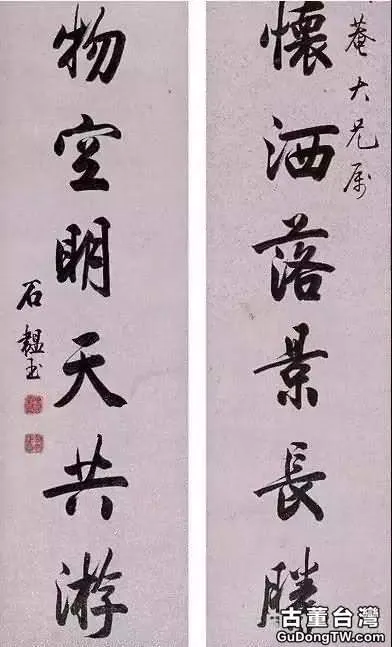 菴大兄属
懷洒落景長勝
物空明天共游
石韞玉
古董台灣
GuDongTW.com